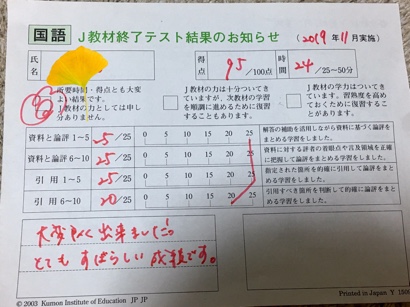 国語 J教材終了テスト結果のお知らせ (2019年11月実施)
氏名
得点 95/100点
時間 24/25~50分
所要時間・得点とも大変よい結果です。
J教材の力としては申し分ありません。
J教材の力は十分ついてきていますが、次教材の学習を順調に進めるために復習することもあります。
J教材の学力はついてきています。習熟度を高めておくために復習することがあります。
資料と論評 1~5 25/25 0 5 10 15 20 25 解答の補助を活用しながら資料に基づく論評をまとめる学習をしました。
資料と論評 6~10 25/25 0 5 10 15 20 25 資料に対する評者の着眼点や言及領域を正確に把握して論評をまとめる学習をしました。
引用 1~5 25/25 0 5 10 15 20 25 指定された箇所を的確に引用して論評をまとめる学習をしました。
引用 6~10 20/25 0 5 10 15 20 25 引用すべき箇所を判断して的確に論評をまとめる学習をしました。
大変良く出来ました。
とてもすばらしい成績です。
© 2003 Kumon Institute of Education JP JP
Printed in Japan Y